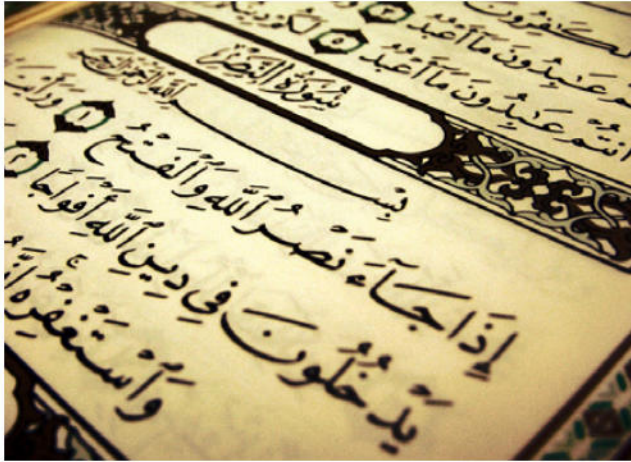 لكفرون
عبدون ما أعبد ٣
أنتم عبدون ما أعبد ٥ لكم دين
سُورَةُ النَّصْر
بِسْمِ ٱللَّهِ ٱلرَّحْمَٰنِ ٱلرَّحِيمِ
إِذَا جَآءَ نَصْرُ ٱللَّهِ وَٱلْفَتْحُ ١ وَرَأَيْتَ
يَدْخُلُونَ فِى دِينِ ٱللَّهِ أَفْوَاجًا ٢
وَٱسْتَغْفِرْهُ إِنَّهُ